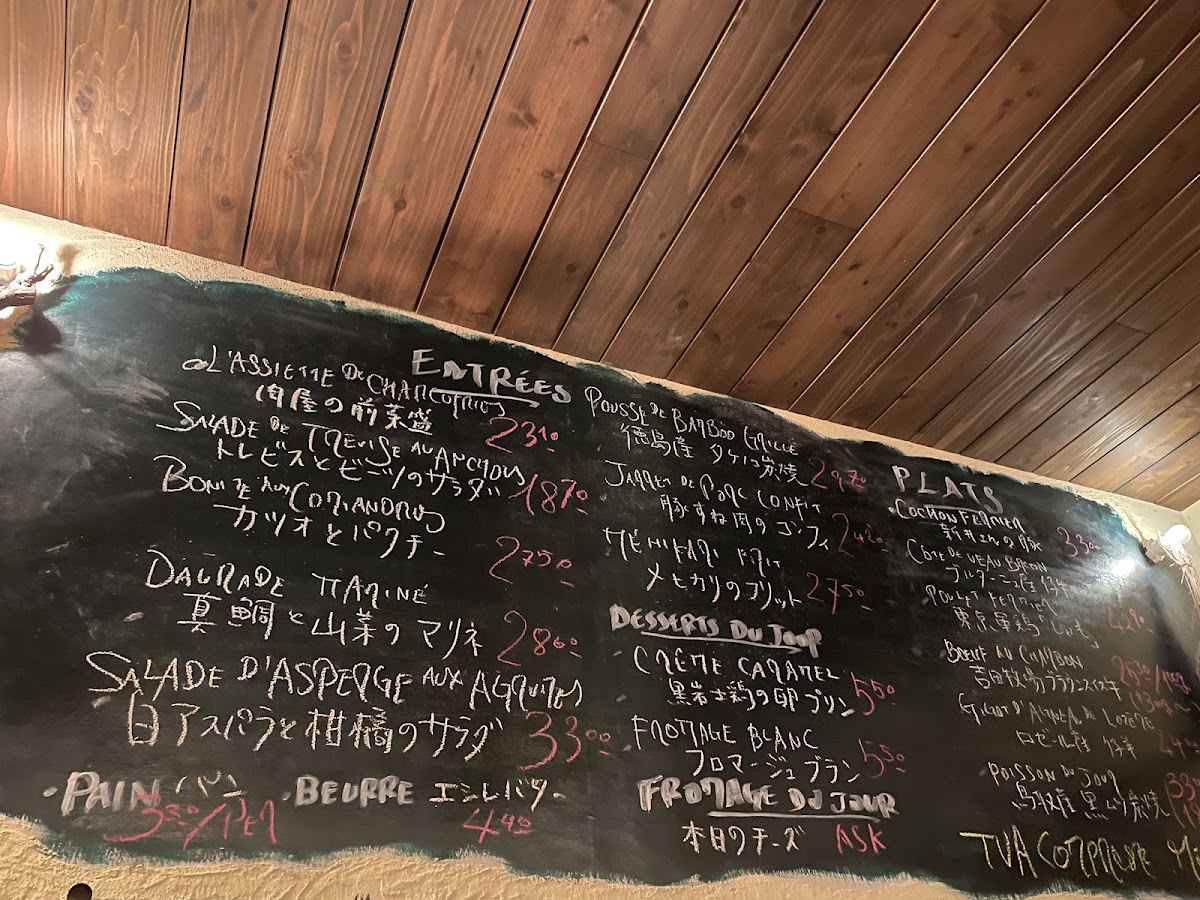 ENTRÉES
L'ASSIETTE DE CHARCUTRIES
肉屋の前菜盛 2310
SALADE DE TREVISE AU ANCHOIS
トレビスとビーツのサラダ 1870
BONITE AUX CORIANDRES
カツオとパクチー 2750
DAURADE MARINÉ
真鯛と山菜のマリネ 2860
SALADE D'ASPERGE AUX AGRUMES
白アスパラと柑橘のサラダ 3300
PAIN パン 350/PER
BEURRE エシレバター 440
POUSSE DE BAMBOO GRILLÉ
徳島産 タケノコ炭焼 2970
JARRET DE PORC CONFIT
豚すね肉のコンフィ 2420
MEHIKARI FRIT
メヒカリのフリット 2750
DESSERTS DU JOUR
CRÊME CARAMEL
黒岩土鶏の卵プリン 550
FROMAGE BLANC
フロマージュブラン 550
FROMAGE DU JOUR
本日のチーズ ASK
PLATS
COCHON FERMIER
新井さんの豚 3300
CÔTE DE VEAU BRETON
ブルターニュ産 仔牛
POULET FERMIER
東京軍鶏
BŒUF AU CHARBON
吉田牧場ブラウンスイス牛
GIGOT D'AGNEAU DE LOZERE
ロゼール産 仔羊
POISSON DU JOUR
鳥取産
TVA COMPRISE